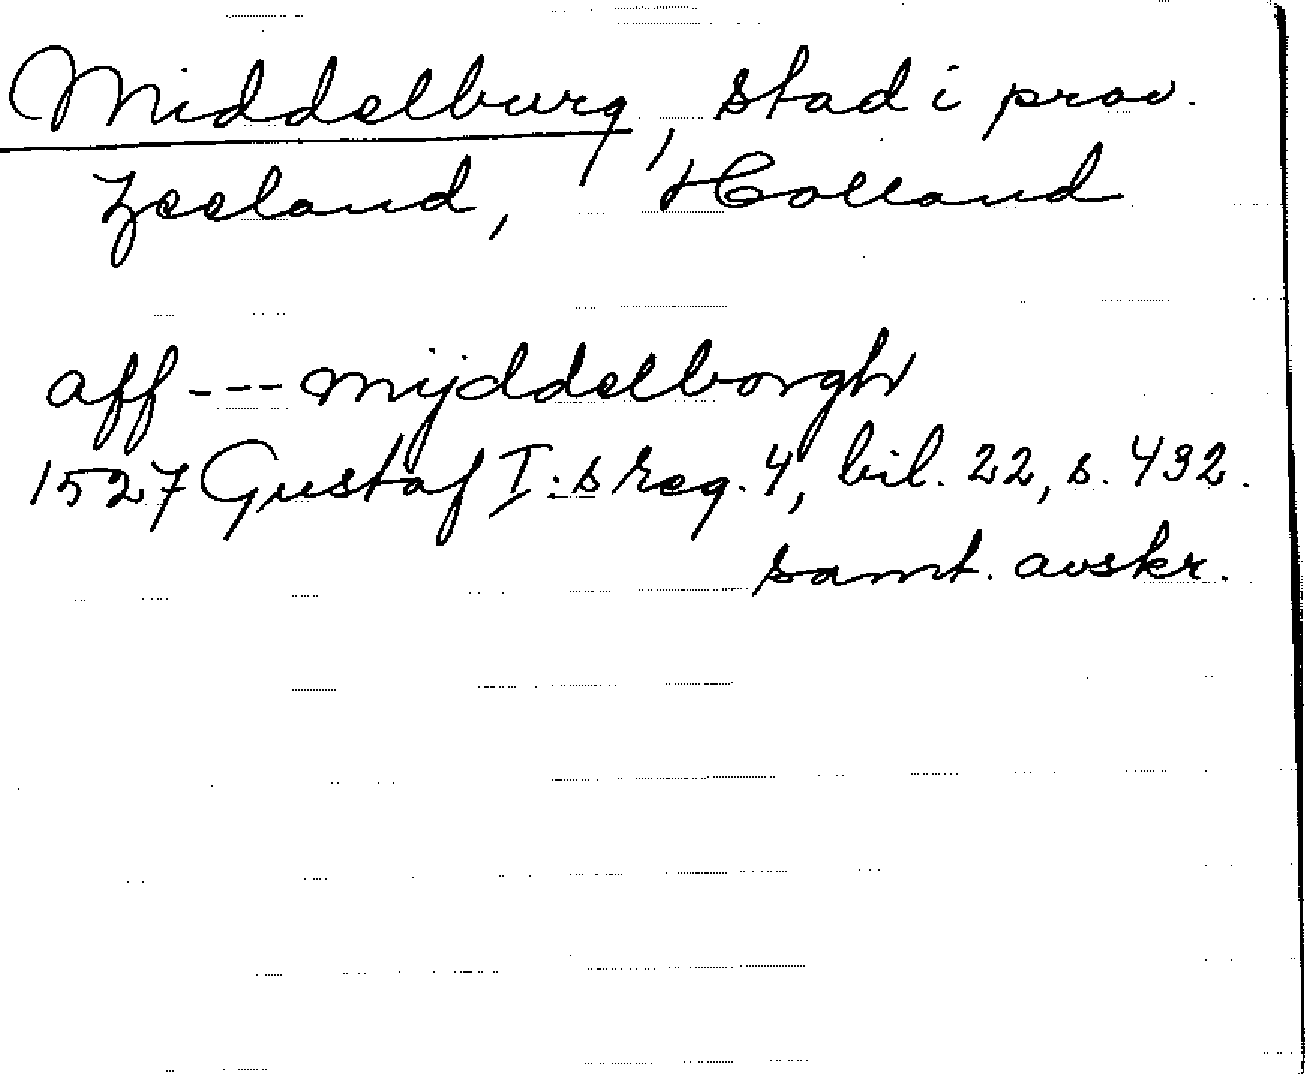 Middelburg, stad i prov.
Zeeland, Holland
aff --- mijddelborgh
1527 Gustaf I:s reg. 4, bil. 22, s. 432.
samt. avskr.